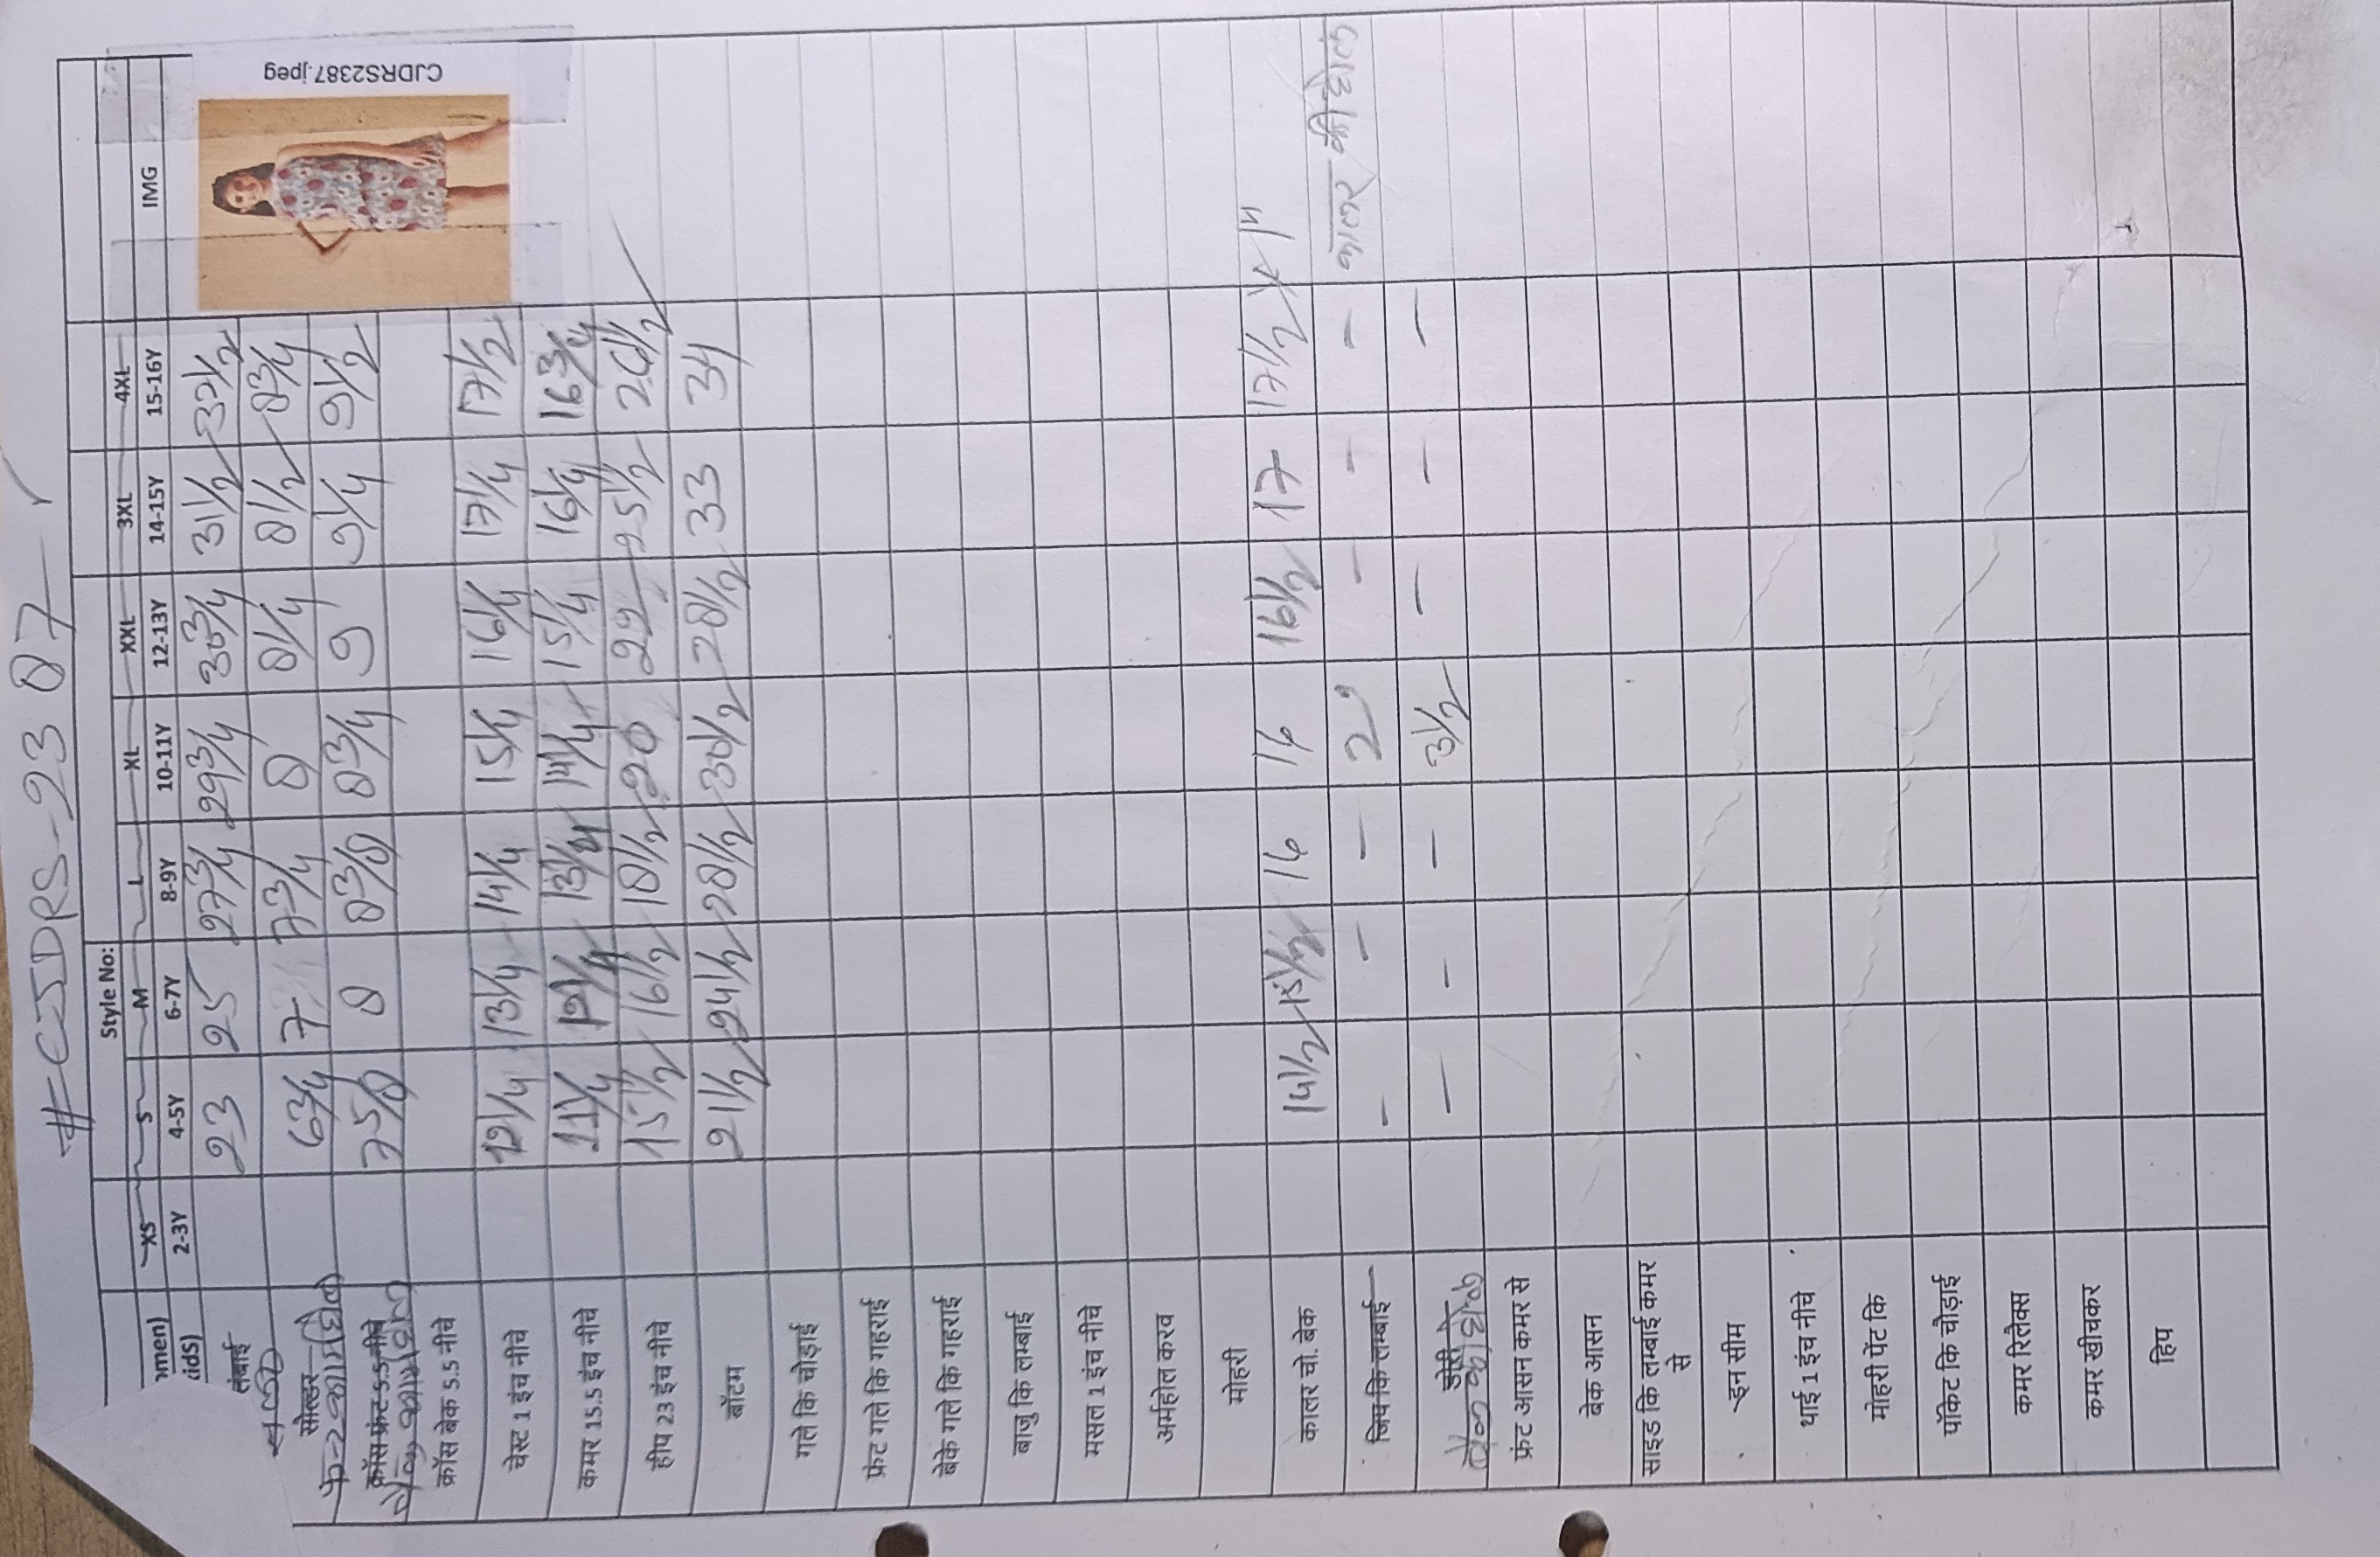 #CJDRS-2387
Style No:
XS S M L XL XXL 3XL 4XL IMG
2-3Y 4-5Y 6-7Y 8-9Y 10-11Y 12-13Y 14-15Y 15-16Y
CJDRS2387.jpeg
लंबाई 23 25 27 3/4 29 3/4 30 3/4 31 1/2 32 1/2
सोल्डर 6 3/4 7 7 3/4 8 8 1/4 8 1/2 8 3/4
क्रॉस फ्रंट 5.5 नीचे 7 5/8 8 8 3/8 8 3/4 9 9 1/4 9 1/2
क्रॉस बेक 5.5 नीचे
चेस्ट 1 इंच नीचे 12 1/4 13 1/4 14 1/4 15 1/4 16 1/4 17 1/4 17 1/2
कमर 15.5 इंच नीचे 11 1/4 12 1/4 13 1/4 14 1/4 15 1/4 16 1/4 16 3/4
हीप 23 इंच नीचे 15 1/2 16 1/2 18 1/2 20 22 25 1/2 26 1/2
बॉटम 21 1/2 24 1/2 28 1/2 30 1/2 28 1/2 33 34
गले कि चोड़ाई
फ्रंट गले कि गहराई
बेके गले कि गहराई
बाजु कि लम्बाई
मसल 1 इंच नीचे
अर्महोल करव
मोहरी
कालर चो. बेक 14 1/2 15 1/2 16 16 16 1/2 17 17 1/2 x 1"
जिप कि लम्बाई - - - 2 - - - कालर की होल
डोरी - - - 3 1/2 - - -
फ्रंट आसन कमर से
बेक आसन
साइड कि लम्बाई कमर
से
इन सीम
थाई 1 इंच नीचे
मोहरी पेंट कि
पॉकेट कि चौड़ाई
कमर रिलेक्स
कमर खीचकर
हिप